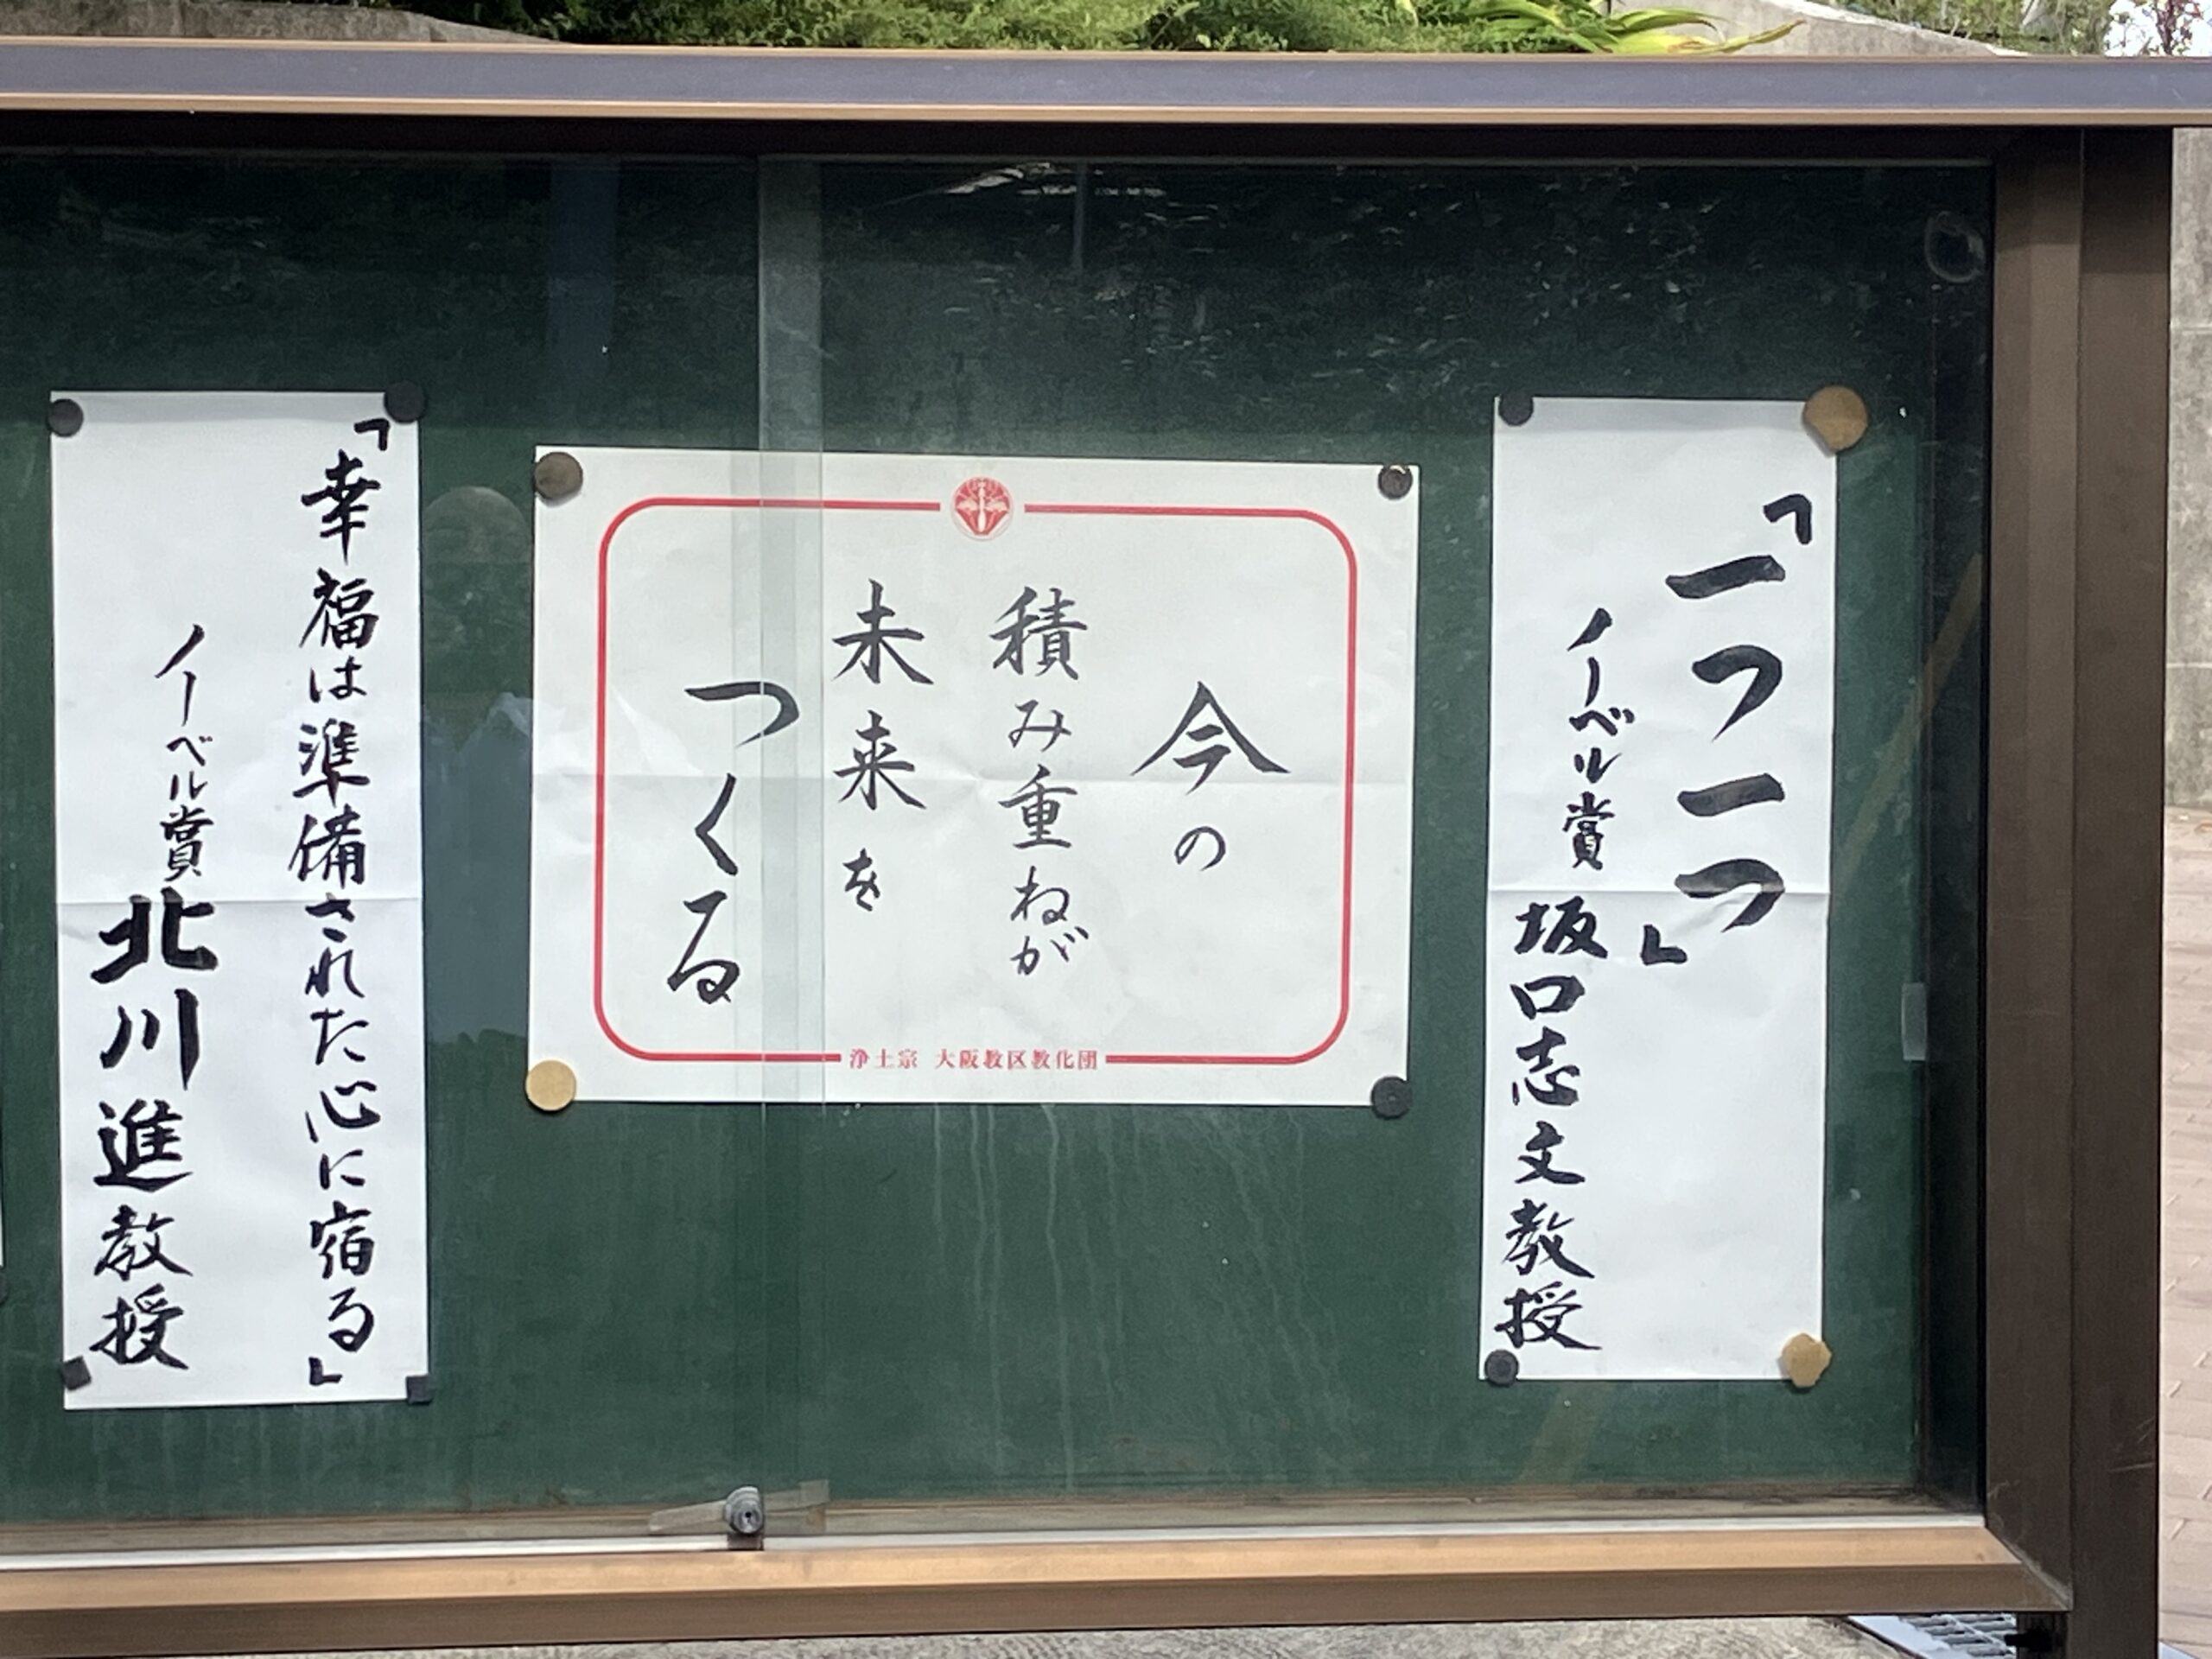 「一つ一つ」
ノーベル賞 坂口志文教授
今の
積み重ねが
未来を
つくる
浄土宗 大阪教区教化団
「幸福は準備された心に宿る」
ノーベル賞 北川進教授